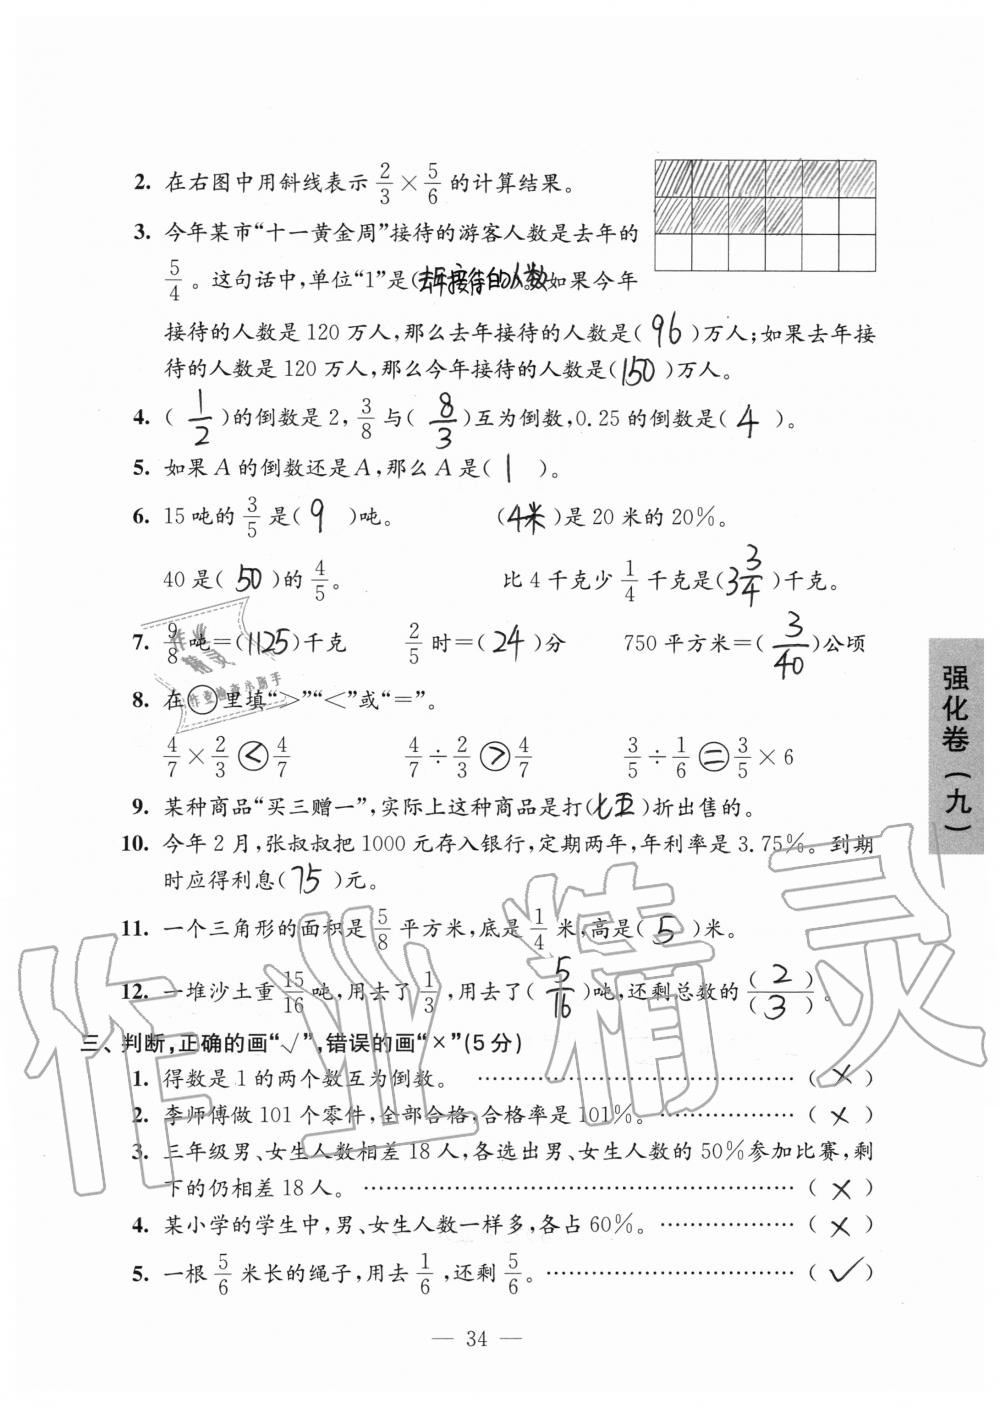 2. 在右图中用斜线表示 2/3 × 5/6 的计算结果。
3. 今年某市“十一黄金周”接待的游客人数是去年的
5/4 。这句话中,单位“1”是(去年接待的人数 如果今年
接待的人数是 120 万人,那么去年接待的人数是( 96 )万人;如果去年接
待的人数是 120 万人,那么今年接待的人数是( 150 )万人。
4. ( 1/2 )的倒数是 2, 3/8 与( 8/3 )互为倒数,0.25 的倒数是( 4 )。
5. 如果 A 的倒数还是 A,那么 A 是( 1 )。
6. 15 吨的 3/5 是( 9 )吨。 ( 4米 )是 20 米的 20%。
40 是( 50 )的 4/5 。 比 4 千克少 1/4 千克是( 3 3/4 )千克。
7. 9/8 吨=( 1125 )千克 2/5 时=( 24 )分 750 平方米=( 3/40 )公顷
8. 在○里填“>”“<”或“=”。
4/7 × 2/3 < 4/7 4/7 ÷ 2/3 > 4/7 3/5 ÷ 1/6 = 3/5 × 6
9. 某种商品“买三赠一”,实际上这种商品是打( 七五 )折出售的。
10. 今年 2 月,张叔叔把 1000 元存入银行,定期两年,年利率是 3.75%。到期
时应得利息( 75 )元。
11. 一个三角形的面积是 5/8 平方米,底是 1/4 米,高是( 5 )米。
12. 一堆沙土重 15/16 吨,用去了 1/3 ,用去了( 5/16 )吨,还剩总数的 (2)/(3) 。
三、判断,正确的画“√”,错误的画“×”(5 分)
1. 得数是 1 的两个数互为倒数。 ………………………………( × )
2. 李师傅做 101 个零件,全部合格,合格率是 101%。 ………………( × )
3. 三年级男、女生人数相差 18 人,各选出男、女生人数的 50%参加比赛,剩
下的仍相差 18 人。 ………………………………………………( × )
4. 某小学的学生中,男、女生人数一样多,各占 60%。 ………………( × )
5. 一根 5/6 米长的绳子,用去 1/6 ,还剩 5/6 。 ……………………………( √ )
— 34 —
强化卷(九)
作业精灵
作业精灵
作业检查小助手